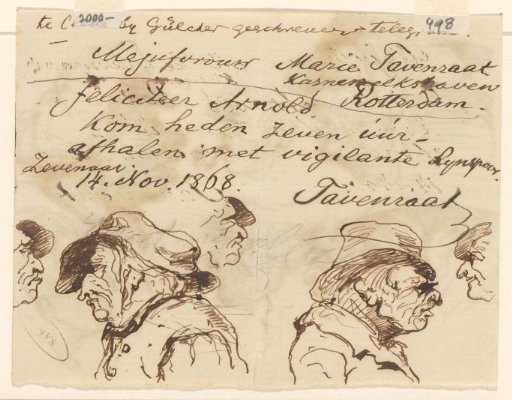 2000-
498
te C by Gülcher geschreven telegr
Mejufvrouw Marie Tavenraat
Rotterdam.
feliciteer Arnold
Kom heden zeven uur-
afhalen met vigilante
Zevenaar.
14. Nov. 1868.
Tavenraat